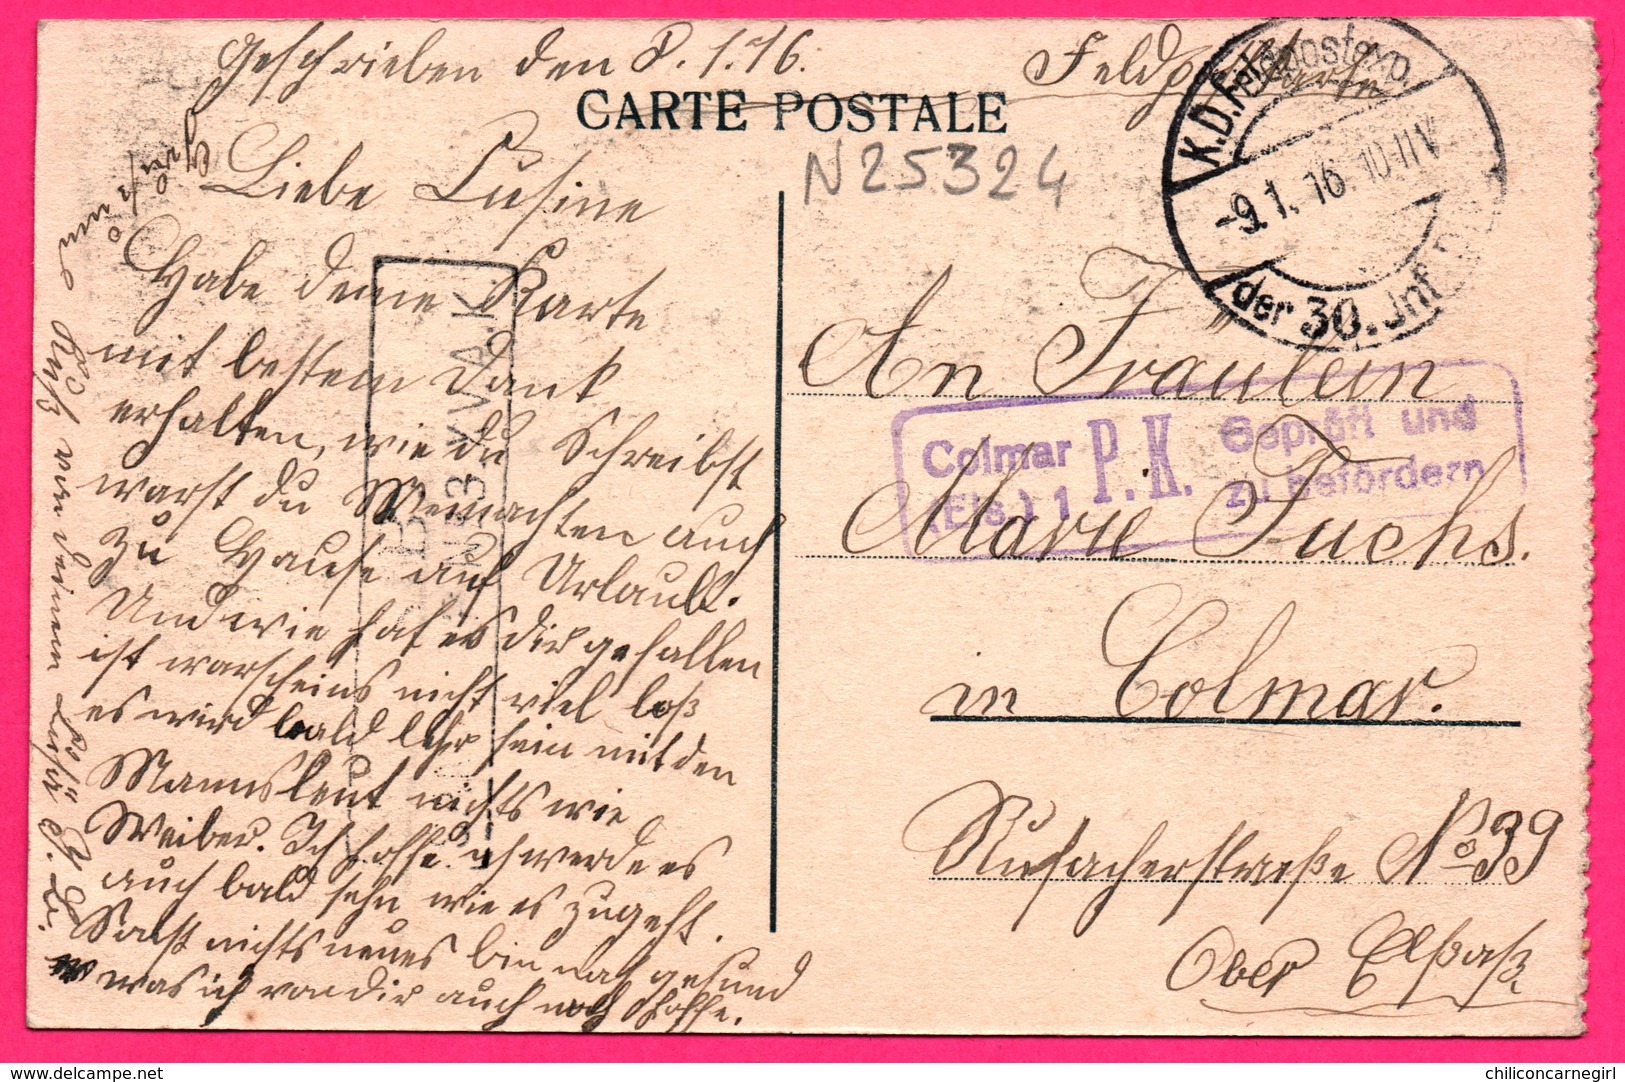 Geschrieben den 8.1.16.
Feldpostkarte
CARTE POSTALE
N25324
K.D. Feldpostexp.
-9.1.16 10-11V
der 30. Inf.
Liebe Cusine
Habe deine Karte
mit bestem Dank
erhalten, wie du Schreibst
warst du Weinachten auch
zu Hause auf Urlaub.
Und wie hat es dir gefallen
ist warscheins nicht viel loß
es wird bald leer sein mit den
Mannsleut nichts wie
Weiber. Ich hoffe ich werde es
auch bald sehn wie es zugeht.
Sonst nichts neues bin noch gesund
was ich von dir auch noch hoffe.
Kuß von deinem
An Fräulein
Marie Fuchs.
in Colmar.
Rufacherstraße No 39
Ober Elsaß
Colmar
(Els.) 1
P. K.
Geprüft und
zu befördern